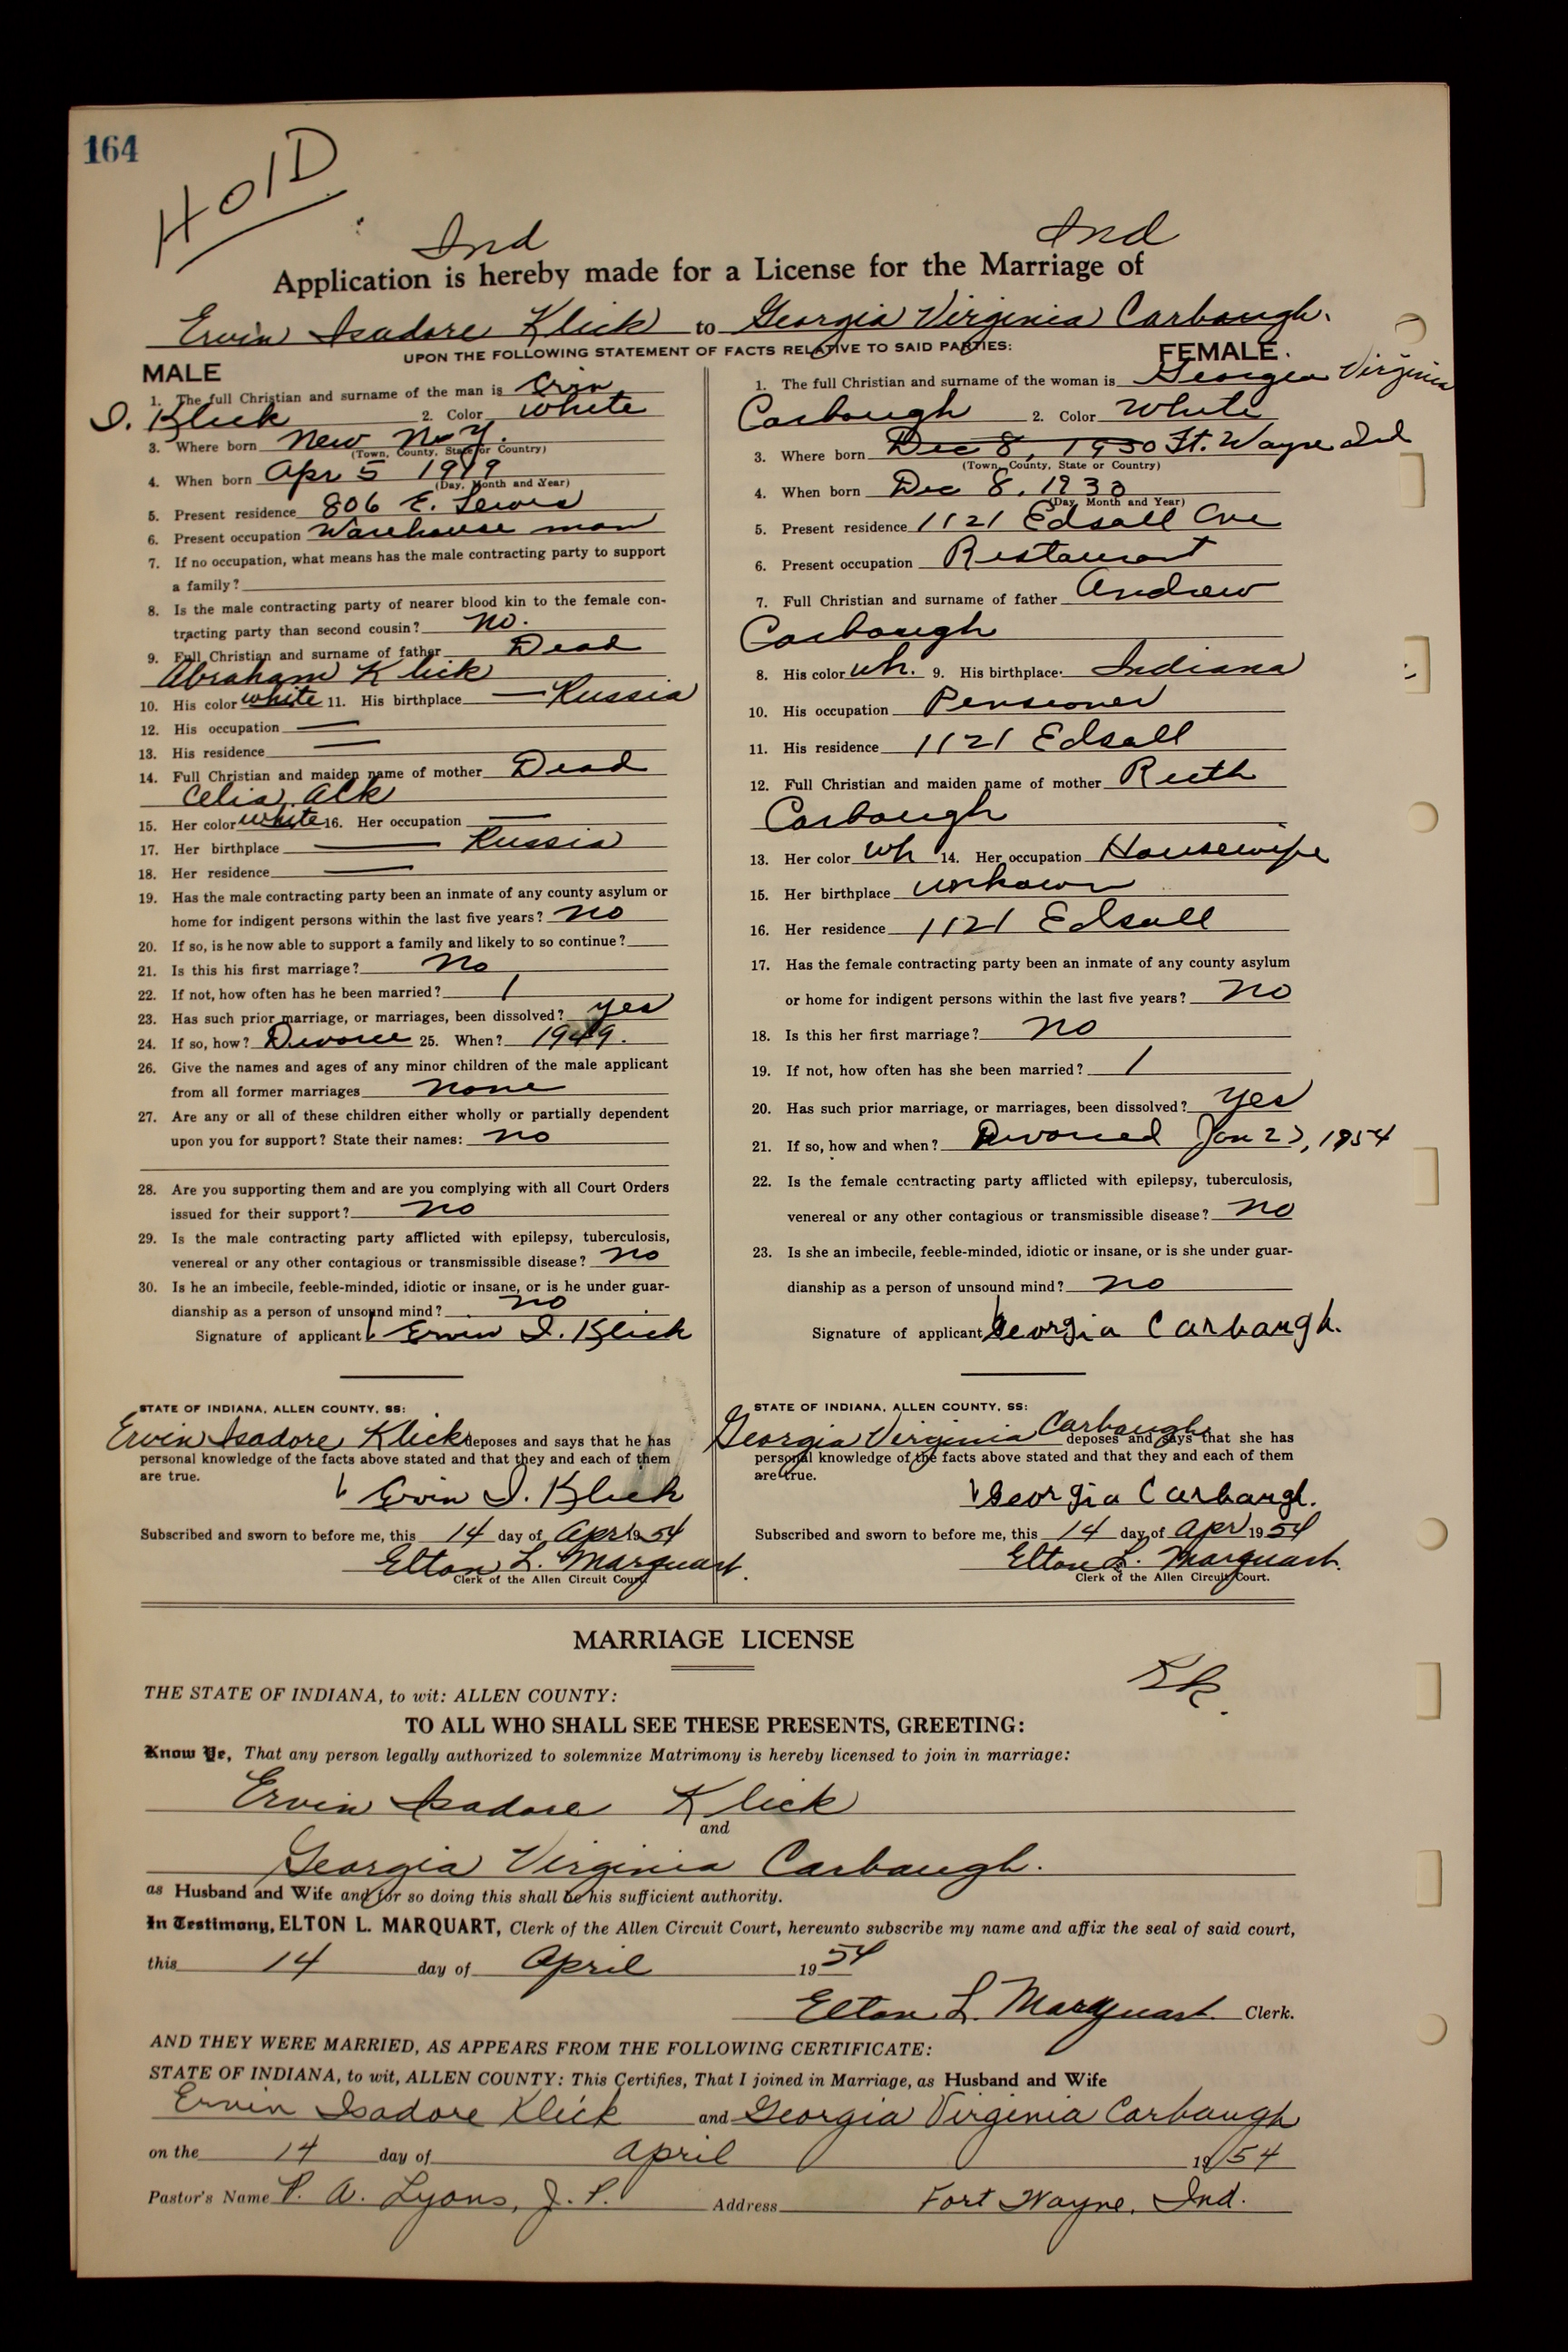 164
HOLD
Ind Ind
Application is hereby made for a License for the Marriage of
Ervin Isadore Klick to Georgia Virginia Carbaugh.
UPON THE FOLLOWING STATEMENT OF FACTS RELATIVE TO SAID PARTIES:
MALE
1. The full Christian and surname of the man is Ervin
I. Klick 2. Color White
3. Where born New N.Y.
(Town, County, State or Country)
4. When born Apr 5 1919
(Day, Month and Year)
5. Present residence 806 E. Lewis
6. Present occupation Warehouse man
7. If no occupation, what means has the male contracting party to support
a family?
8. Is the male contracting party of nearer blood kin to the female con-
tracting party than second cousin? no.
9. Full Christian and surname of father Dead
Abraham Klick
10. His color white 11. His birthplace — Russia
12. His occupation —
13. His residence —
14. Full Christian and maiden name of mother Dead
Celia Alk
15. Her color white 16. Her occupation —
17. Her birthplace — Russia
18. Her residence —
19. Has the male contracting party been an inmate of any county asylum or
home for indigent persons within the last five years? no
20. If so, is he now able to support a family and likely to so continue?
21. Is this his first marriage? no
22. If not, how often has he been married? 1
23. Has such prior marriage, or marriages, been dissolved? yes
24. If so, how? Divorce 25. When? 1949.
26. Give the names and ages of any minor children of the male applicant
from all former marriages none
27. Are any or all of these children either wholly or partially dependent
upon you for support? State their names: no
28. Are you supporting them and are you complying with all Court Orders
issued for their support? no
29. Is the male contracting party afflicted with epilepsy, tuberculosis,
venereal or any other contagious or transmissible disease? no
30. Is he an imbecile, feeble-minded, idiotic or insane, or is he under guar-
dianship as a person of unsound mind? no
Signature of applicant Ervin I. Klick
STATE OF INDIANA, ALLEN COUNTY, SS:
Ervin Isadore Klick deposes and says that he has
personal knowledge of the facts above stated and that they and each of them
are true.
Ervin I. Klick
Subscribed and sworn to before me, this 14 day of Apr 1954
Elton L. Marquart.
Clerk of the Allen Circuit Court.
FEMALE.
1. The full Christian and surname of the woman is Georgia Virginia
Carbaugh 2. Color White
3. Where born Dec 8, 1930 Ft. Wayne Ind
(Town, County, State or Country)
4. When born Dec 8, 1930
(Day, Month and Year)
5. Present residence 1121 Edsall Ave
6. Present occupation Restaurant
7. Full Christian and surname of father Andrew
Carbaugh
8. His color wh. 9. His birthplace Indiana
10. His occupation Pensioner
11. His residence 1121 Edsall
12. Full Christian and maiden name of mother Ruth
Carbaugh
13. Her color wh 14. Her occupation Housewife
15. Her birthplace unkown
16. Her residence 1121 Edsall
17. Has the female contracting party been an inmate of any county asylum
or home for indigent persons within the last five years? no
18. Is this her first marriage? no
19. If not, how often has she been married? 1
20. Has such prior marriage, or marriages, been dissolved? yes
21. If so, how and when? Divorced Jan 27, 1954
22. Is the female contracting party afflicted with epilepsy, tuberculosis,
venereal or any other contagious or transmissible disease? no
23. Is she an imbecile, feeble-minded, idiotic or insane, or is she under guar-
dianship as a person of unsound mind? no
Signature of applicant Georgia Carbaugh.
STATE OF INDIANA, ALLEN COUNTY, SS:
Georgia Virginia Carbaugh deposes and says that she has
personal knowledge of the facts above stated and that they and each of them
are true.
Georgia Carbaugh.
Subscribed and sworn to before me, this 14 day of Apr 1954
Elton L. Marquart.
Clerk of the Allen Circuit Court.
MARRIAGE LICENSE
THE STATE OF INDIANA, to wit: ALLEN COUNTY:
TO ALL WHO SHALL SEE THESE PRESENTS, GREETING:
Know Ye, That any person legally authorized to solemnize Matrimony is hereby licensed to join in marriage:
Ervin Isadore Klick
and
Georgia Virginia Carbaugh.
as Husband and Wife and for so doing this shall be his sufficient authority.
In Testimony, ELTON L. MARQUART, Clerk of the Allen Circuit Court, hereunto subscribe my name and affix the seal of said court,
this 14 day of April 1954
Elton L. Marquart. Clerk.
AND THEY WERE MARRIED, AS APPEARS FROM THE FOLLOWING CERTIFICATE:
STATE OF INDIANA, to wit, ALLEN COUNTY: This Certifies, That I joined in Marriage, as Husband and Wife
Ervin Isadore Klick and Georgia Virginia Carbaugh
on the 14 day of April 1954
Pastor's Name P. A. Lyons, J. P. Address Fort Wayne, Ind.